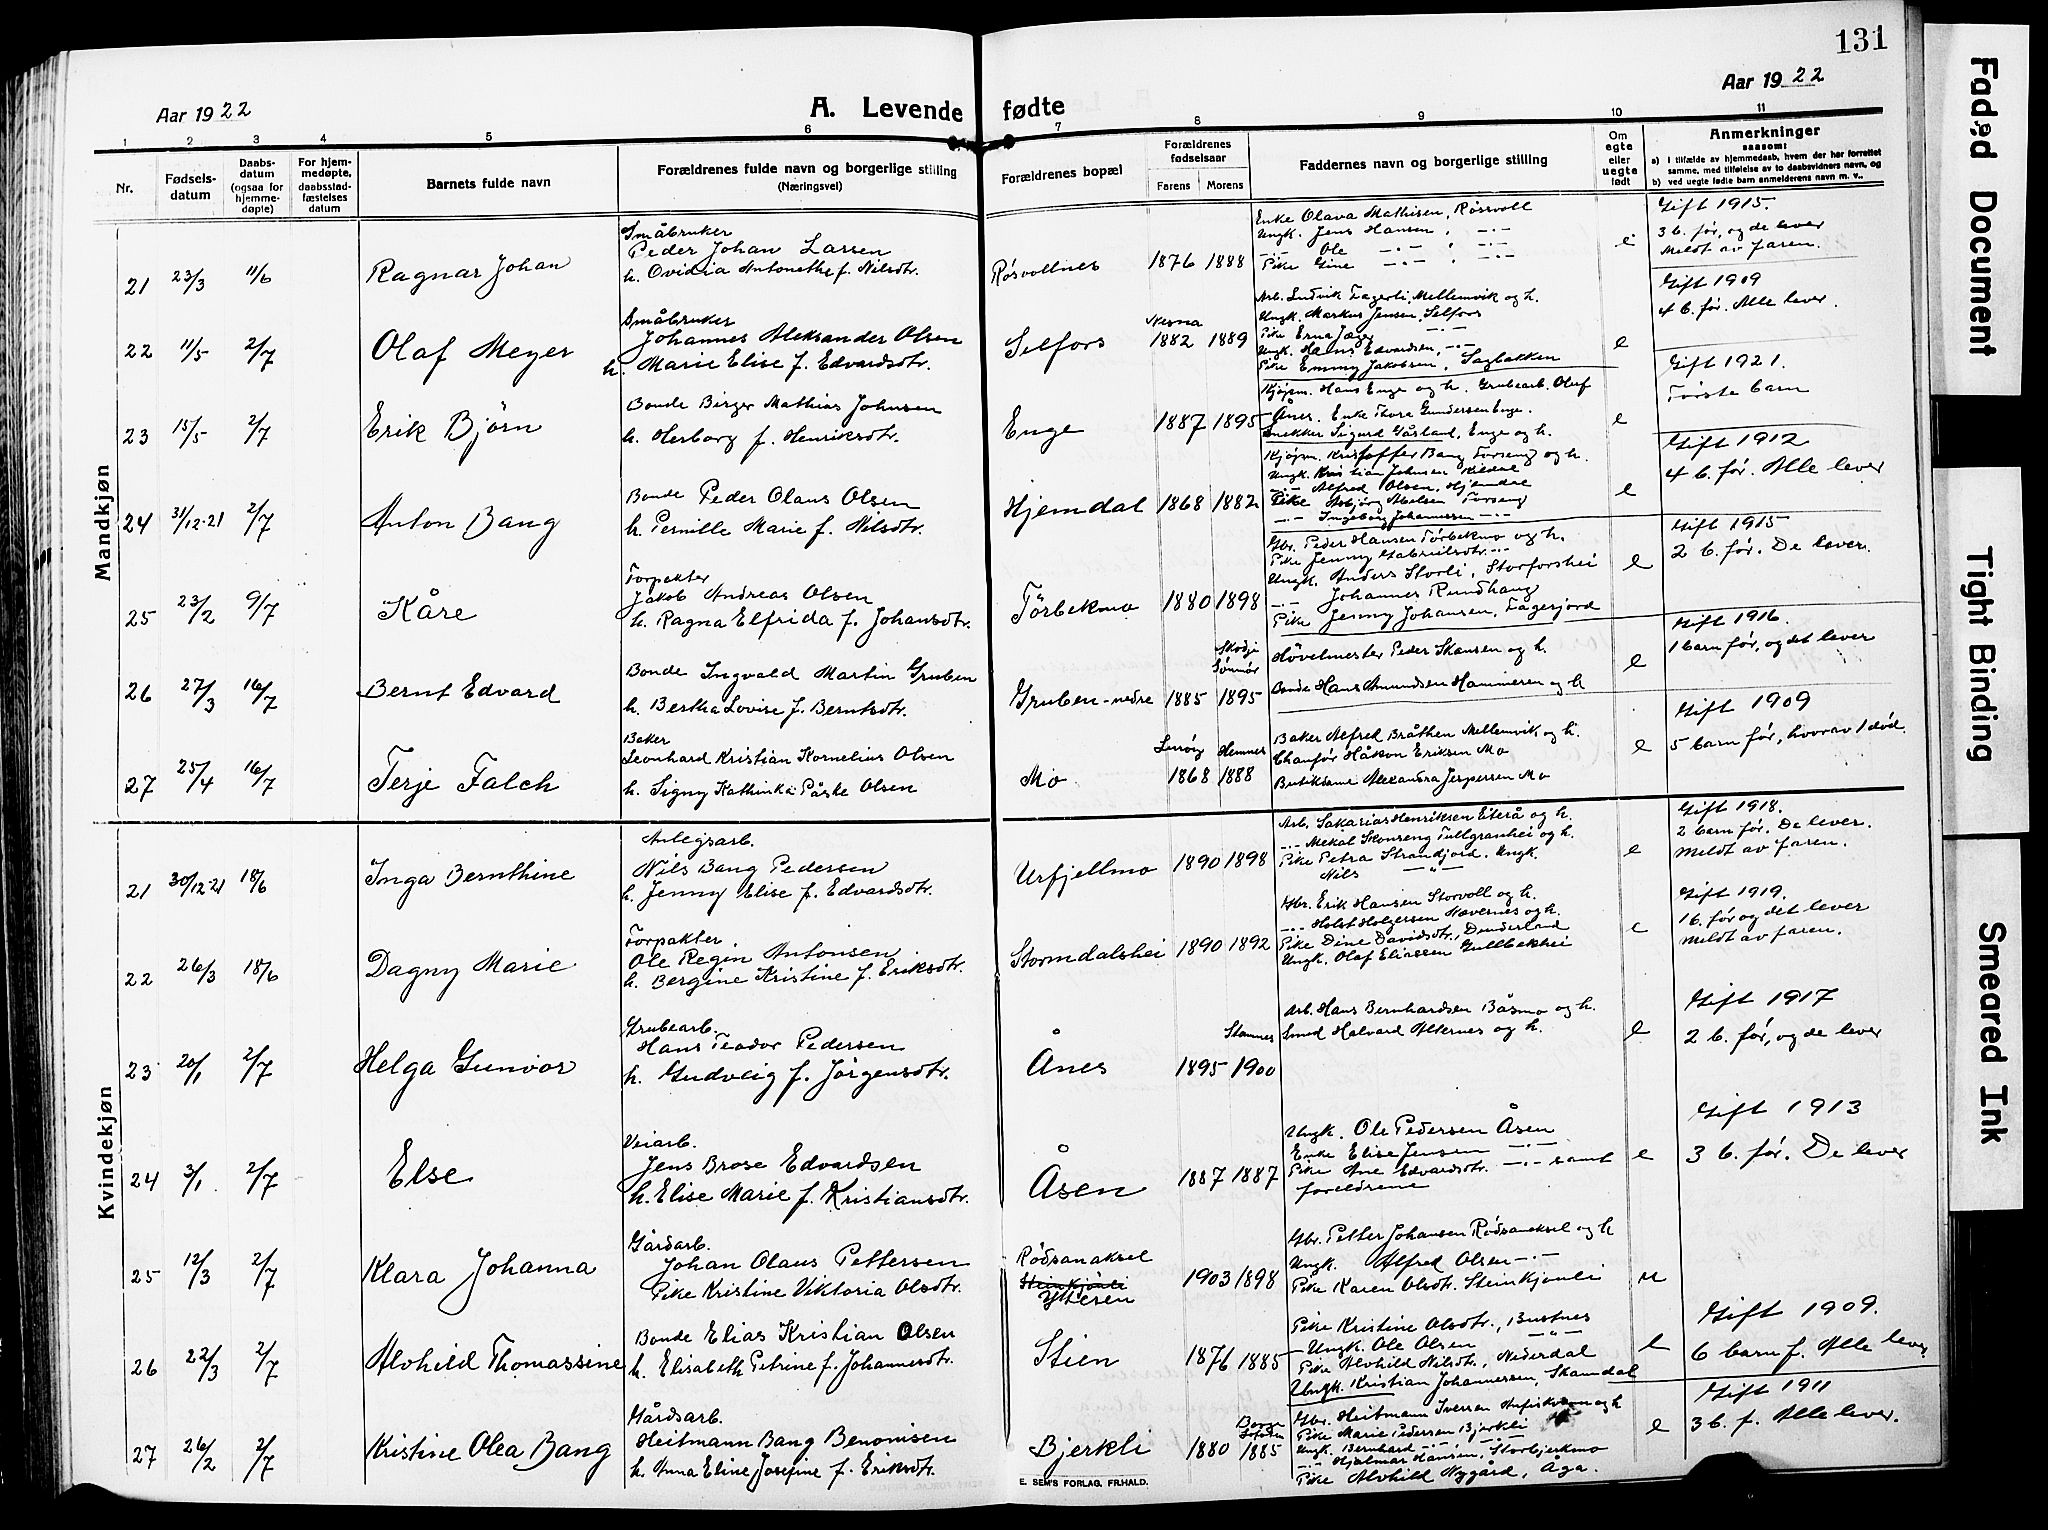 131
Aar 1922
A. Levende fødte
Aar 1922
1 2 3 4 5 6 7 8 9 10 11
Nr.
Fødsels-
datum
Daabs-
datum
(ogsaa for
hjemme-
døpte)
For hjem-
medøpte,
daabsstad-
fæstelses
datum
Barnets fulde navn
Forældrenes fulde navn og borgerlige stilling
(Næringsvei)
Forældrenes bopæl
Forældrenes
fødselsaar
Farens. Morens
Faddernes navn og borgerlige stilling
Om
egte
eller
uegte
født
Anmerkninger
saasom:
a) I tilfælde av hjemmedaab, hvem der har forrettet
samme, med tilføielse av to daabsvidners navn, og
b) ved uegte fødte barn anmelderens navn m. v..
Mandkjøn
21 23/3 11/6 Ragnar Johan
Småbruker
Peder Johan Larsen
h. Ovidia Antonethe f. Nilsdtr.
Røsvollnes 1876 1888
Enke Olava Mathisen, Røssvoll
Ungk. Jens Hansen, -·-
-·- Ole -·- , -·-
Pike Gine -·- , -·-
e
Gift 1915.
3 b. før, og de lever
Meldt av faren.
22 11/5 2/7 Olaf Meyer
Småbruker
Johannes Aleksander Olsen
h. Marie Elise f. Edvardsdtr.
Selfors
Nesna
1882 1889
Arb. Ludvik Fagerli, Mellemvik og h.
Ungk. Markus Jensen, Selfors
Pike Erna Jæger -·-
Ungk. Hans Edvardsen, -·-
Pike Emmy Jakobsen, Sagbakken
e
Gift 1909
4 b. før. Alle lever.
23 15/5 2/7 Erik Bjørn
Bonde Birger Mathias Johnsen
h. Herborg f. Henriksdtr.
Enge 1887 1895
Kjøpm. Hans Enge og h. Grubearb. Oluf
Ånes. Enke Thora Gundersen Enge.
Snekker Sigurd Gåsland, Enge og h.
e
Gift 1921.
Første barn
24 31/12-21 2/7 Anton Bang
Bonde Peder Olaus Olsen
h. Pernille Marie f. Nilsdtr.
Hjemdal 1868 1882
Kjøpm. Kristoffer Bang Forseng og h.
Ungk. Kristian Johnsen Kildal
-·- Alfred Olsen, Hjemdre
Pike Asbjørg Abelsen Forseng
-·- Ingeborg Johannessen -·-
e
Gift 1912
4 b. før. Alle lever
25 23/2 9/7 Kåre
Forpakter
Jakob Andreas Olsen
h. Ragna Elfrida f. Johansdtr.
Tørbekmo 1880 1898
Gbr. Peder Hansen Tørbekmo og h.
Pike Jenny Gabrielsdtr. -·-
Ungk. Anders Storli, Storforshei
-·- Johannes Rundhaug
Pike Jenny Johansen, Fagerjord
e
Gift 1915
2 b. før. De lever.
26 27/3 16/7 Bernt Edvard
Bonde Ingvald Martin Gruben
h. Bertha Lovise f. Berntsdtr.
Gruben-nedre 1885
Skodje
Sønmør
1895
Høvelmester Peder Skansen og h.
Bonde Hans Amundsen Hammeren og h
e
Gift 1916.
1 barn før, og det lever
27 25/4 16/7 Terje Falch
Baker
Leonhard Kristian Kornelius Olsen
h. Signy Kathinka Påske Olsen
Mo
Lurøy Hemnes
1868 1888
Baker Alfred Bråthen Mellemvik og h.
Chauför Håkon Eriksen Mo
Butikdame Alexandra Jespersen Mo
e
Gift 1909
5 barn før, hvorav 1 død.
Kvindekjøn
21 30/12-21 18/6 Inga Bernthine
Anlegsarb.
Nils Bang Pedersen
h. Jenny Elise f. Edvardsdtr.
Urfjellmo 1890 1898
Arb. Sakarias Henriksen Eiterå og h.
-·- Mekal Skonseng Tullgranhei og h.
Pike Petra Strandjord. Ungk.
Nils -"-
e
Gift 1918.
2 barn før. De lever.
Meldt av faren.
22 26/3 18/6 Dagny Marie
Forpakter.
Ole Regin Antonsen
h. Bergine Kristine f. Eriksdtr.
Stormdalshei 1890 1892
Gbr. Erik Hansen Storvoll og h.
-·- Holst Holgersen Nævernes og h.
Pike Dine Davidsdtr., Dunderland
Ungk. Olaf Eliassen Gullbekhei
e
Gift 1919.
1 b. før og det lever
Meldt av faren.
23 20/1 2/7 Helga Gunvor
Grubearb.
Hans Teodor Pedersen
h. Gudveig f. Jørgensdtr.
Ånes 1895
Stamnes
1900
Arb. Hans Bernhardsen Båsmo og h.
Smed Halvard Alternes og h.
e
Gift 1917
2 b. før, og de lever
24 3/1. 2/7 Else
Veiarb.
Jens Brose Edvardsen
h. Elise Marie f. Kristiansdtr.
Åsen 1887 1887
Ungk. Ole Pedersen Åsen
Enke Elise Jensen -·-
Pike Ane Edvardsdtr. -·- samt
foreldrene
e
Gift 1913
3 b. før. De lever
25 12/3 2/7 Klara Johanna
Gårdarb.
Johan Olaus Pettersen
Pike Kristine Viktoria Olsdtr.
Rødsanaksel
Steinkjønli
Ytteren
1903 1898
Gbr. Petter Johansen Rødsanaksel og h
Ungk. Alfred Olsen -·-
Pike Karen Olsdtr. Steinkjønli
u
26 22/3 2/7 Alvhild Thomassine
Bonde Elias Kristian Olsen
h. Elisabeth Petrine f. Johannesdtr.
Stien 1876 1885
Pike Kristine Olsdtr., Bustnes
Ungk. Ole Olsen -"-
Pike Alvhild Nilsdtr., Nederdal
Ungk. Kristian Johannessen, Skamdal
e
Gift 1909.
6 barn f. Alle lever
27 26/2 2/7 Kristine Olea Bang
Gårdsarb.
Heitmann Bang Benonisen
h. Anna Eline Josefine f. Eriksdtr.
Bjerkli 1880
Borge
Lofoten
1885
Gbr. Heitmann Iversen og h
Pike Marie Pedersen Bjerkli
Ungk. Bernhard -·- -·-
-·- Hjalmar Hansen, Storbjerkmo
Pike Alvhild Nygård, Åga.
e
Gift 1911
3 b. f. Alle lever.
E. SEM'S FORLAG. FR.HALD.
Faded Document
Tight Binding
Smeared Ink